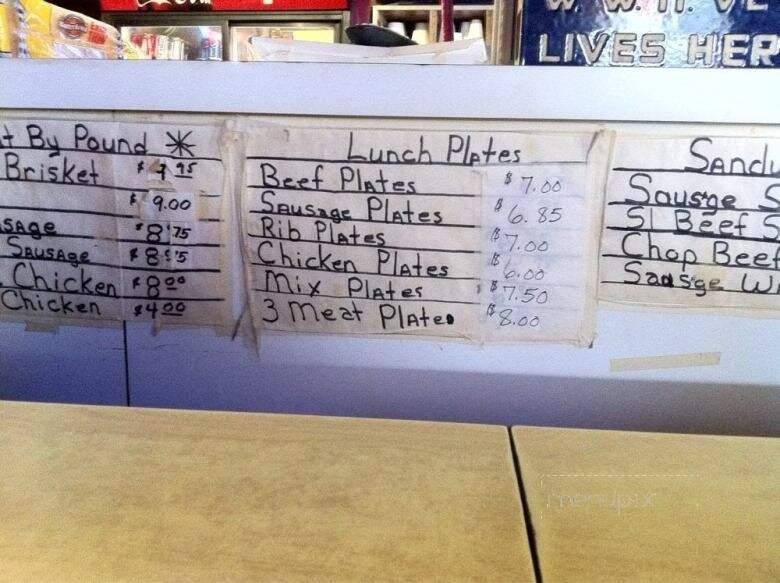 W. W. H.
LIVES HER
t By Pound *
Brisket $ 9 95
$ 9.00
SAGE $8.75
SAUSAGE $8
Chicken $8 00
Chicken $4 00
Lunch Plates
Beef Plates $7.00
Sausage Plates $6.85
Rib Plates $7.00
Chicken Plates $6.00
Mix Plates $7.50
3 Meat Plates $8.00
Sand
Sausge S
Sl Beef S
Chop Beef
Sausge Wi
menupix